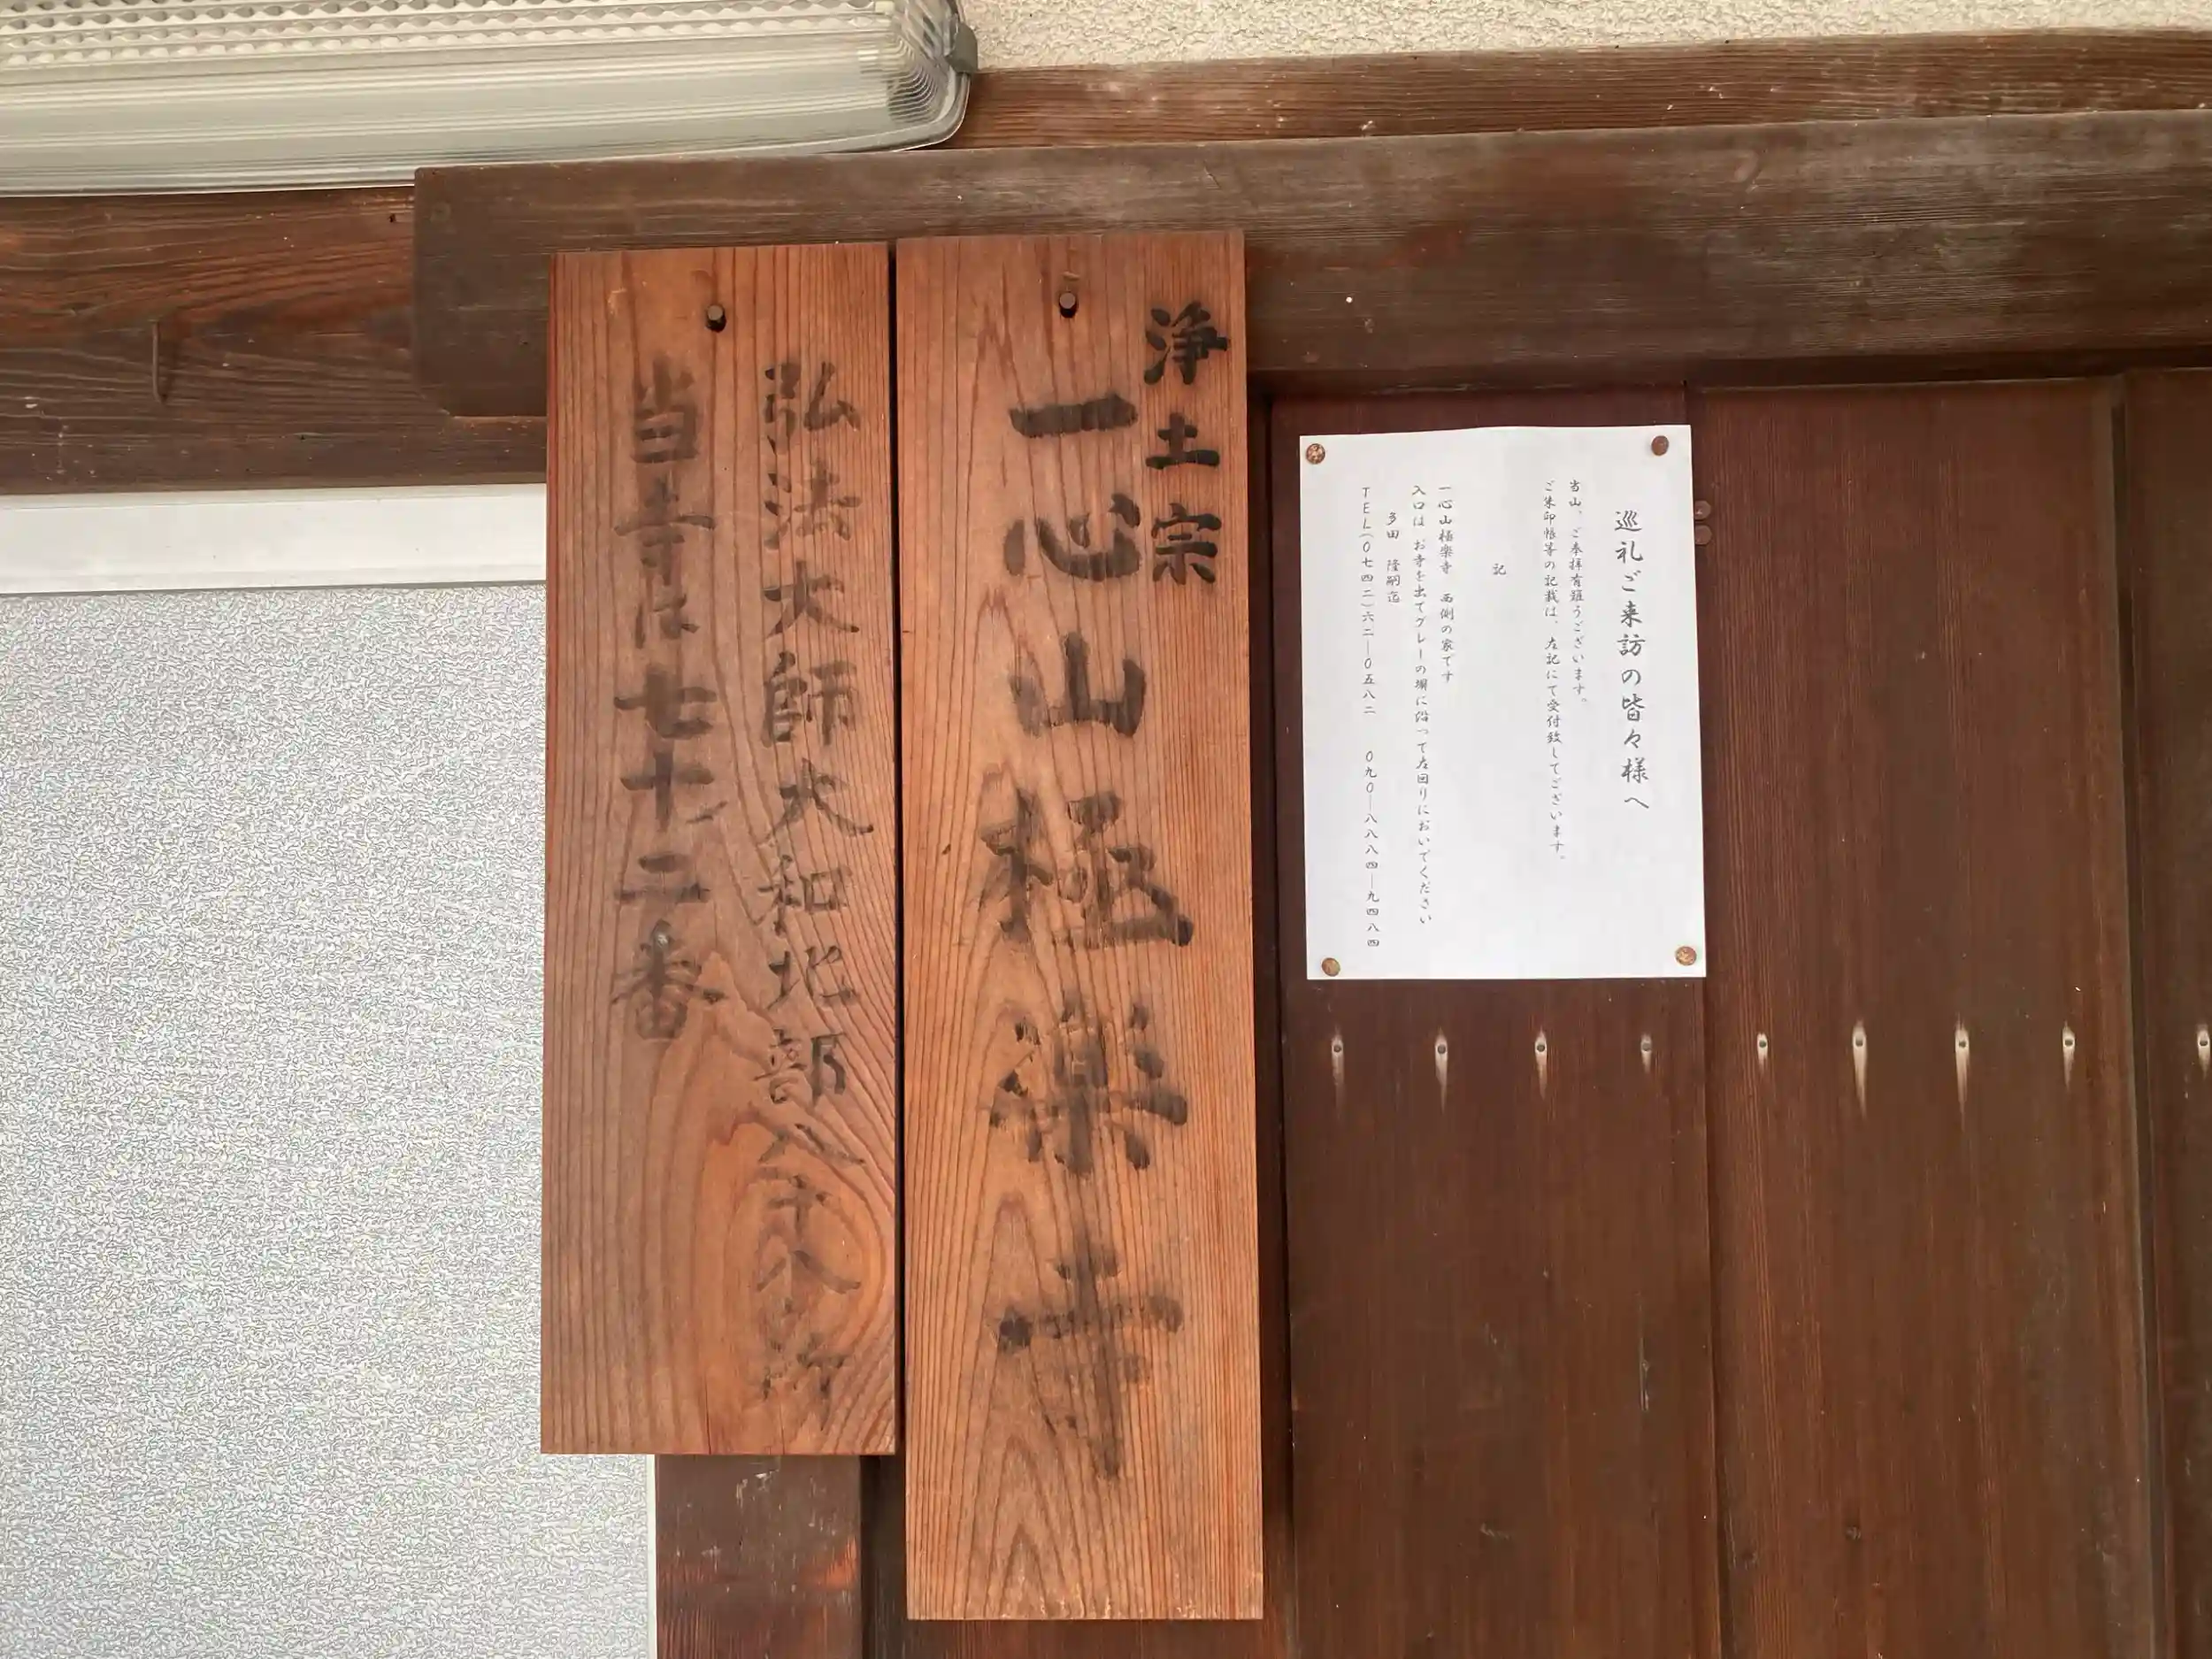 巡礼ご来訪の皆々様へ
当山、ご参拝有難うございます。
ご朱印帳等の記載は、左記にて受付致してございます。
記
一心山極楽寺 西側の家です
入口は、お寺を出てグレーの塀に沿って左回りにおいでください
多田 隆嗣迄
TEL(０七四二)六二―０五八二 ０九０―八八八四―九四八四
浄土宗
一心山極楽寺
弘法大師大和北部八十八ヶ所
当寺は七十二番